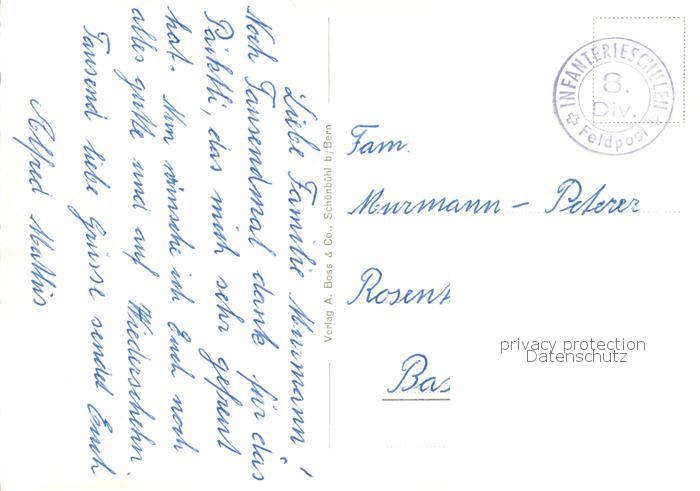 Liebe Familie Murmann!
Noch Tausendmal dank für das
Päiktli, das mich sehr gefreut
hat. Nun wünsche ich Euch noch
alles gutte und auf Wiedersehehn.
Tausend liebe Grüsse sendet Euch
Alfred Mathis
Verlag A. Boss & Co., Schönbühl b/Bern
INFANTERIESCHULEN
8.
Div.
Feldpost
Fam.
Murmann - Peterer
Rosent
Bas
privacy protection
Datenschutz